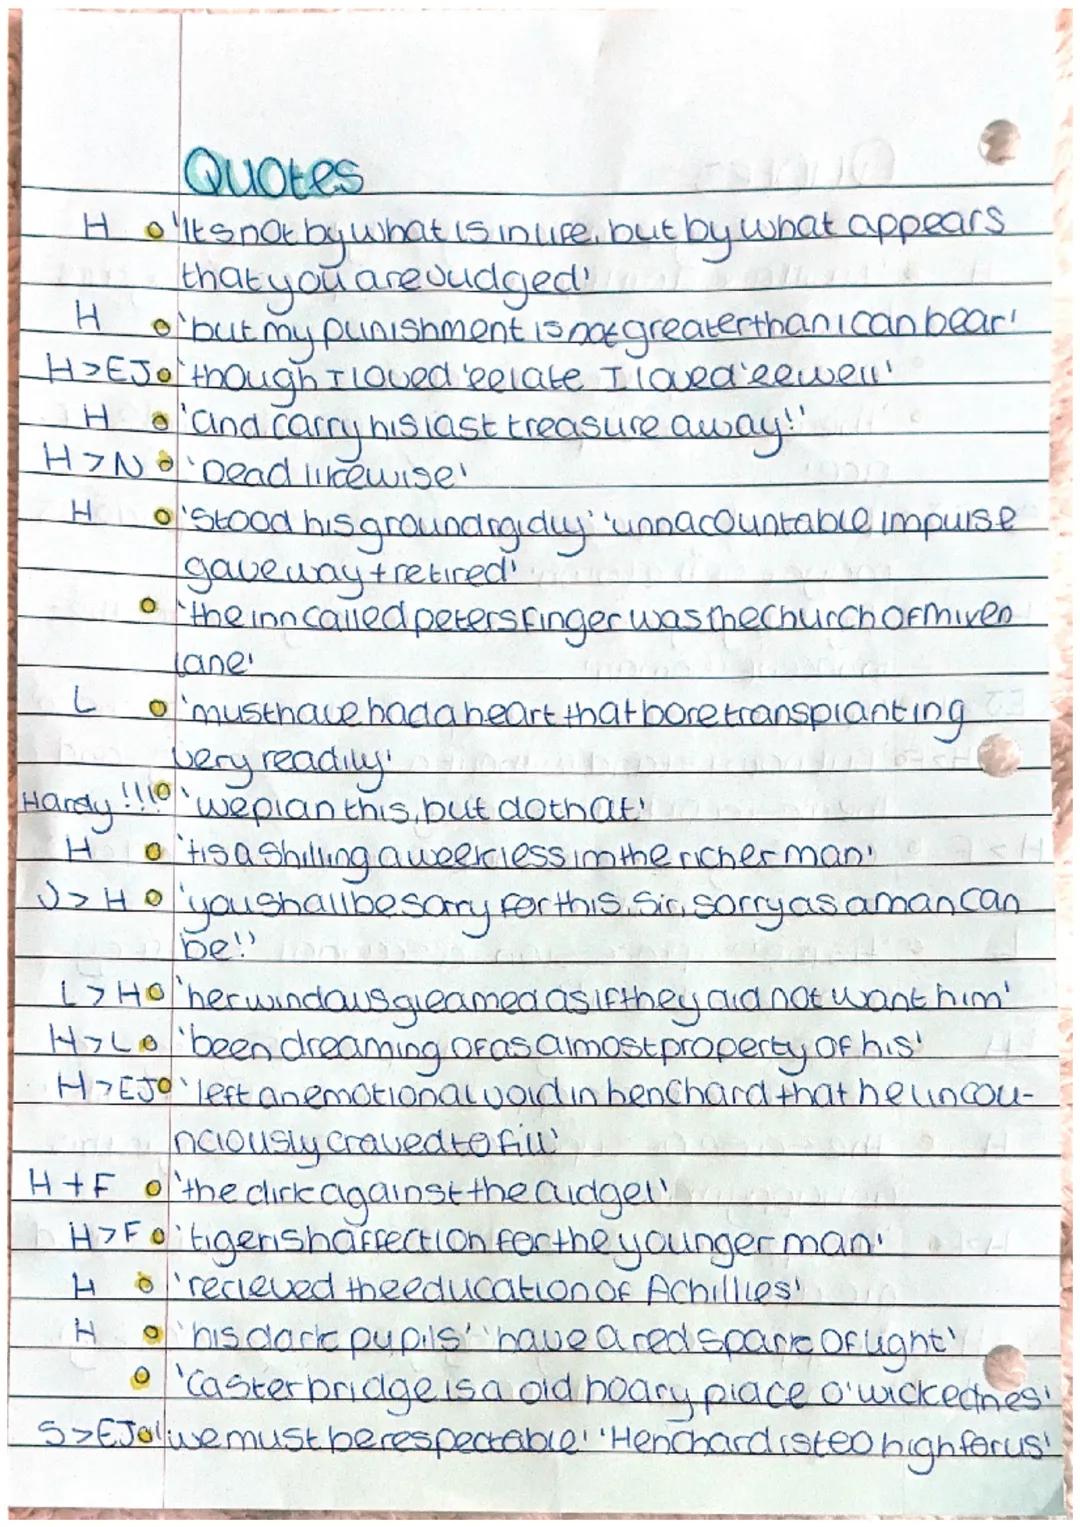 Quotes
H 'Its not by what is in life, but by what appears
that you are Judged'
H 'but my punishment is not greater than i can bear'
H>EJ 'though I loved 'ee late I loved 'ee well'
H 'and carry his last treasure away!'
H>N 'Dead likewise'
H 'Stood his ground rigidly' 'unnacountable impulse
gave way + retired'
'the inn called peters finger was the church of mixen
lane'
L 'must have had a heart that bore transplanting
very readily'
Hardy!!! 'we plan this, but do that'
H 'tis a shilling a week less im the richer man'
J>H 'you shall be sorry for this, sir, sorry as a man can
be!'
L>H 'her windows gleamed as if they did not want him'
H>L 'been dreaming of as almost property of his'
H>EJ 'left an emotional void in henchard that he uncou-
nciously craved to fill'
H+F 'the dirk against the cudgel'
H>F 'tigerish affection for the younger man'
H 'recieved the education of Achillies'
H 'his dark pupils' 'have a red spark of light'
'Casterbridge is a old hoary place o' wickednes'
S>EJ 'we must be respectable' 'Henchard is too high for us'